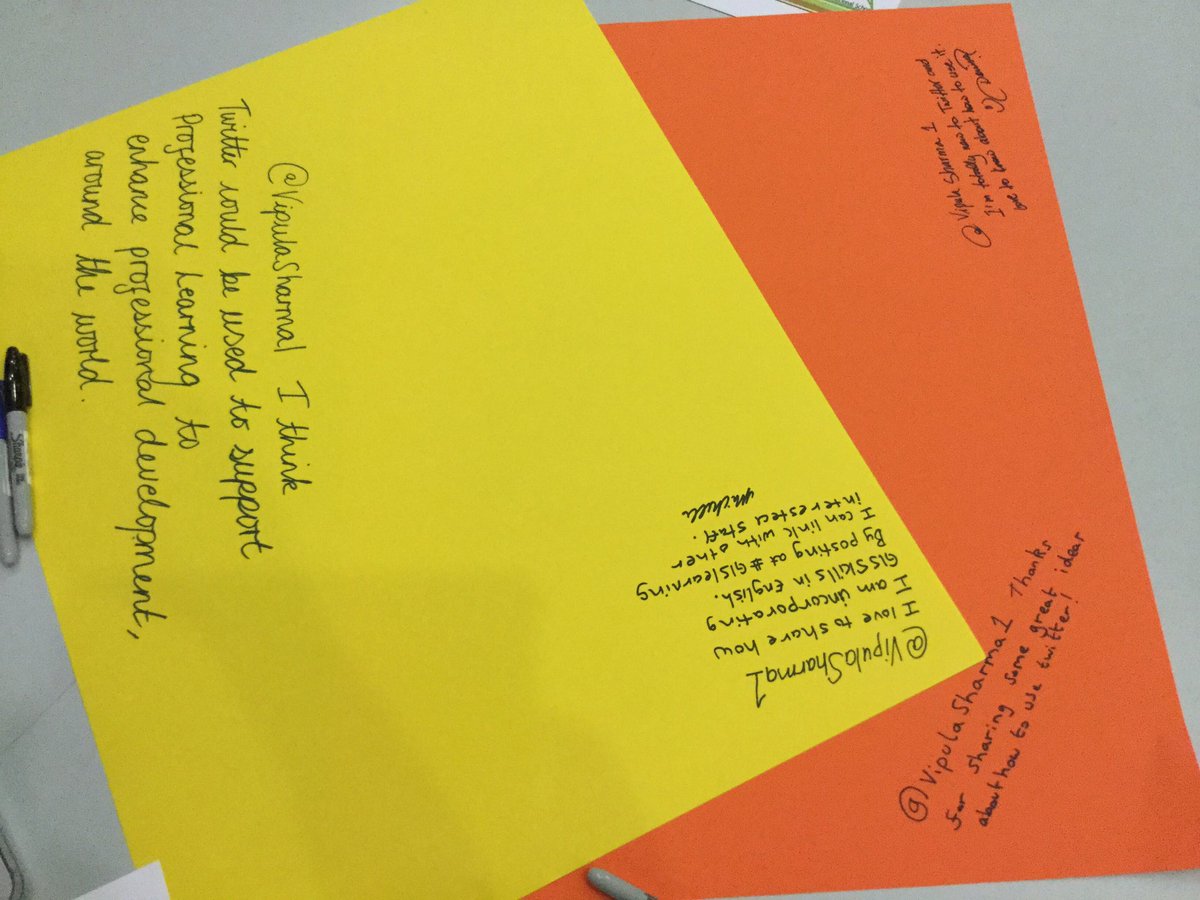 @VipulaSharma1 I think
Twitter could be used to support
Professional Learning to
enhance professional development,
around the world.
@VipulaSharma1
I love to share how
I am incorporating
GISSkills in English.
By posting at #GISlearning
I can link with other
interested staff.
Michelle
@Vipula Sharma 1
I'm totally new to Twitter and
love to learn about how to use it.
@VipulaSharma1 Thanks
for sharing some great ideas
about how to use twitter!